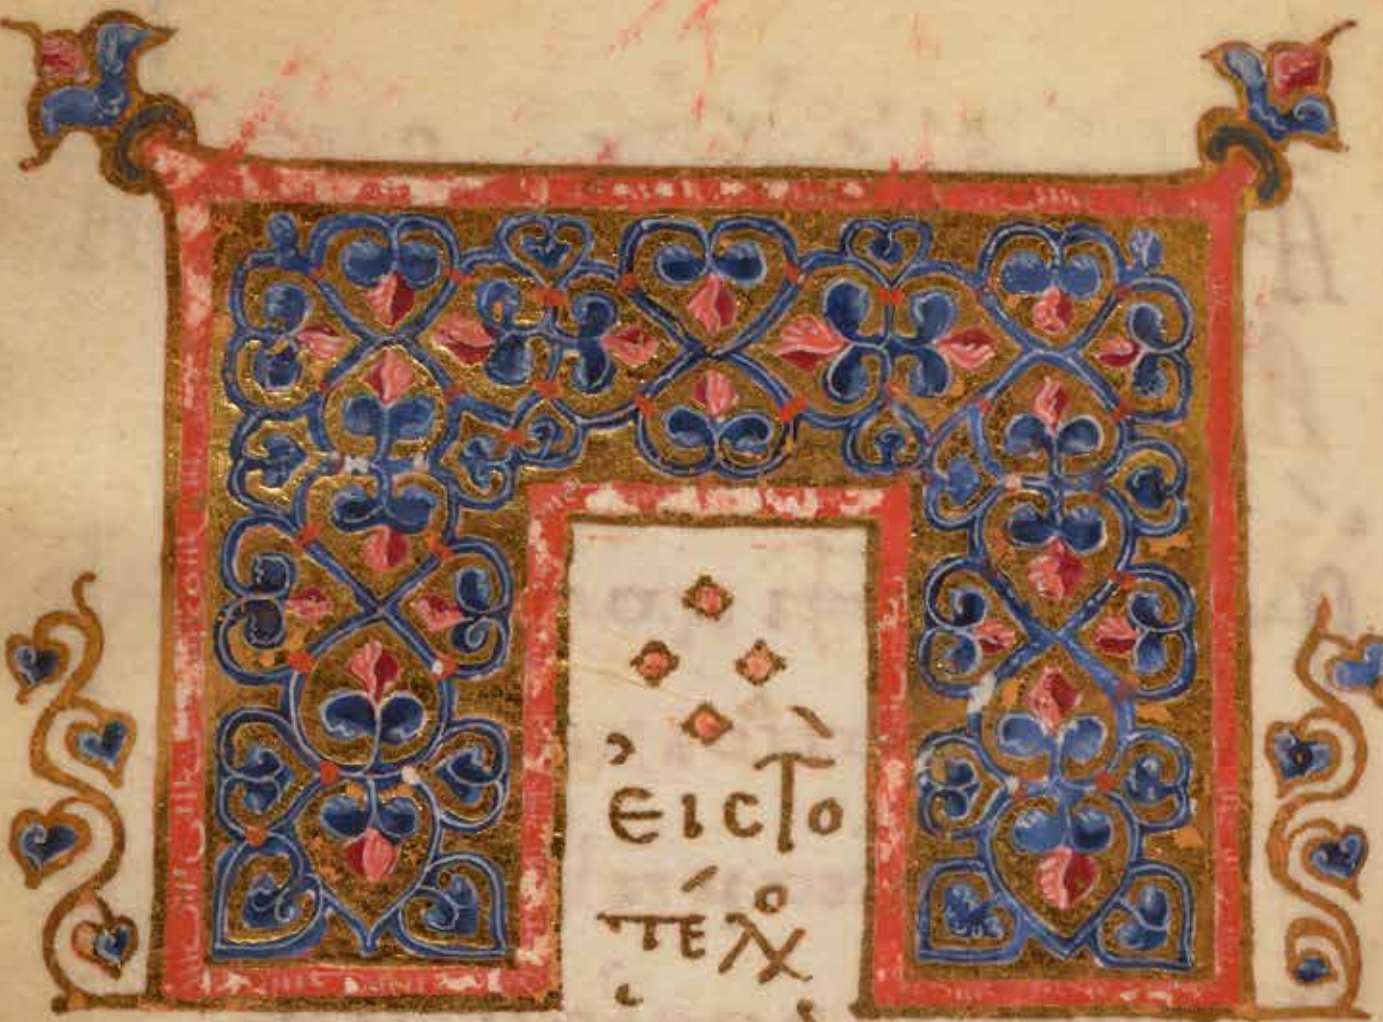 ἐιςτὸ
τέλο